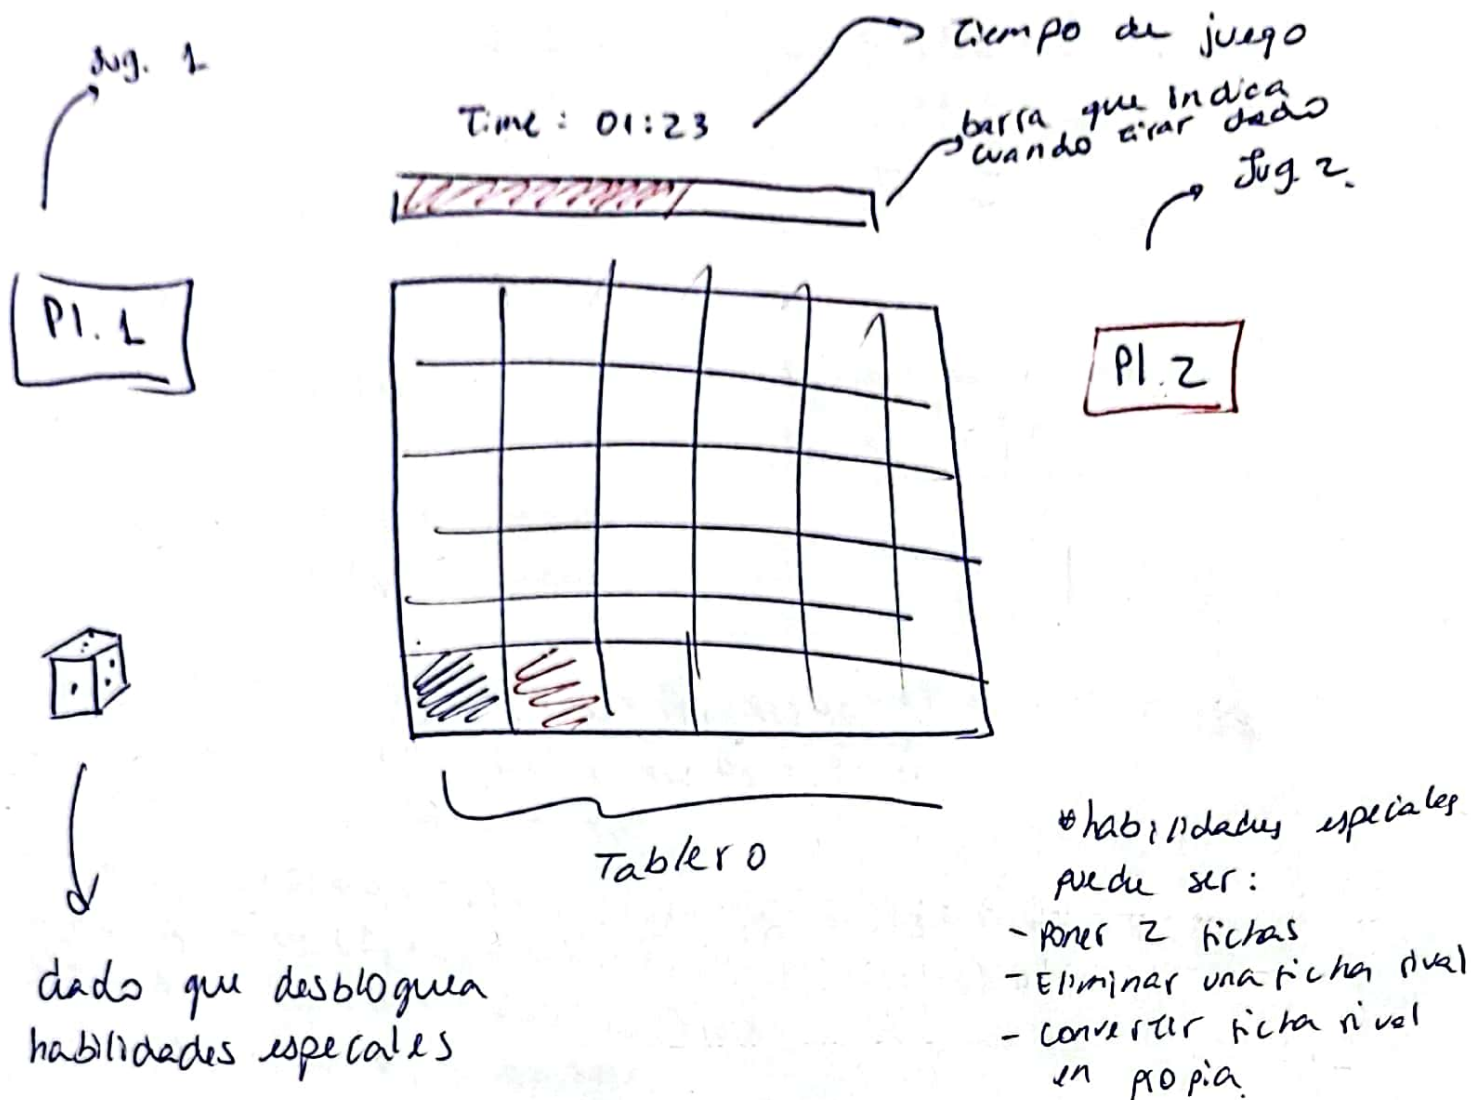 Jug. 1
tiempo de juego
Time: 01:23
barra que indica
cuando tirar dado
Jug. 2.
Pl. 1
Pl. 2
Tablero
dado que desbloquea
habilidades especales
*habilidades especiales
puede ser:
- Poner 2 fichas
- Eliminar una ficha rival
- Convertir ficha rival
en propia.